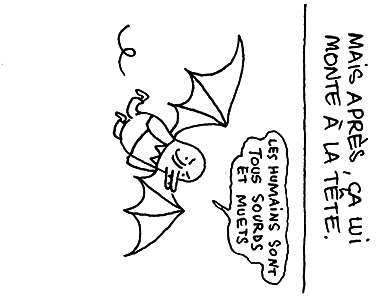 MAIS APRÈS, ÇA LUI
MONTE À LA TÊTE.
LES HUMAINS SONT
TOUS SOURDS
ET MUETS